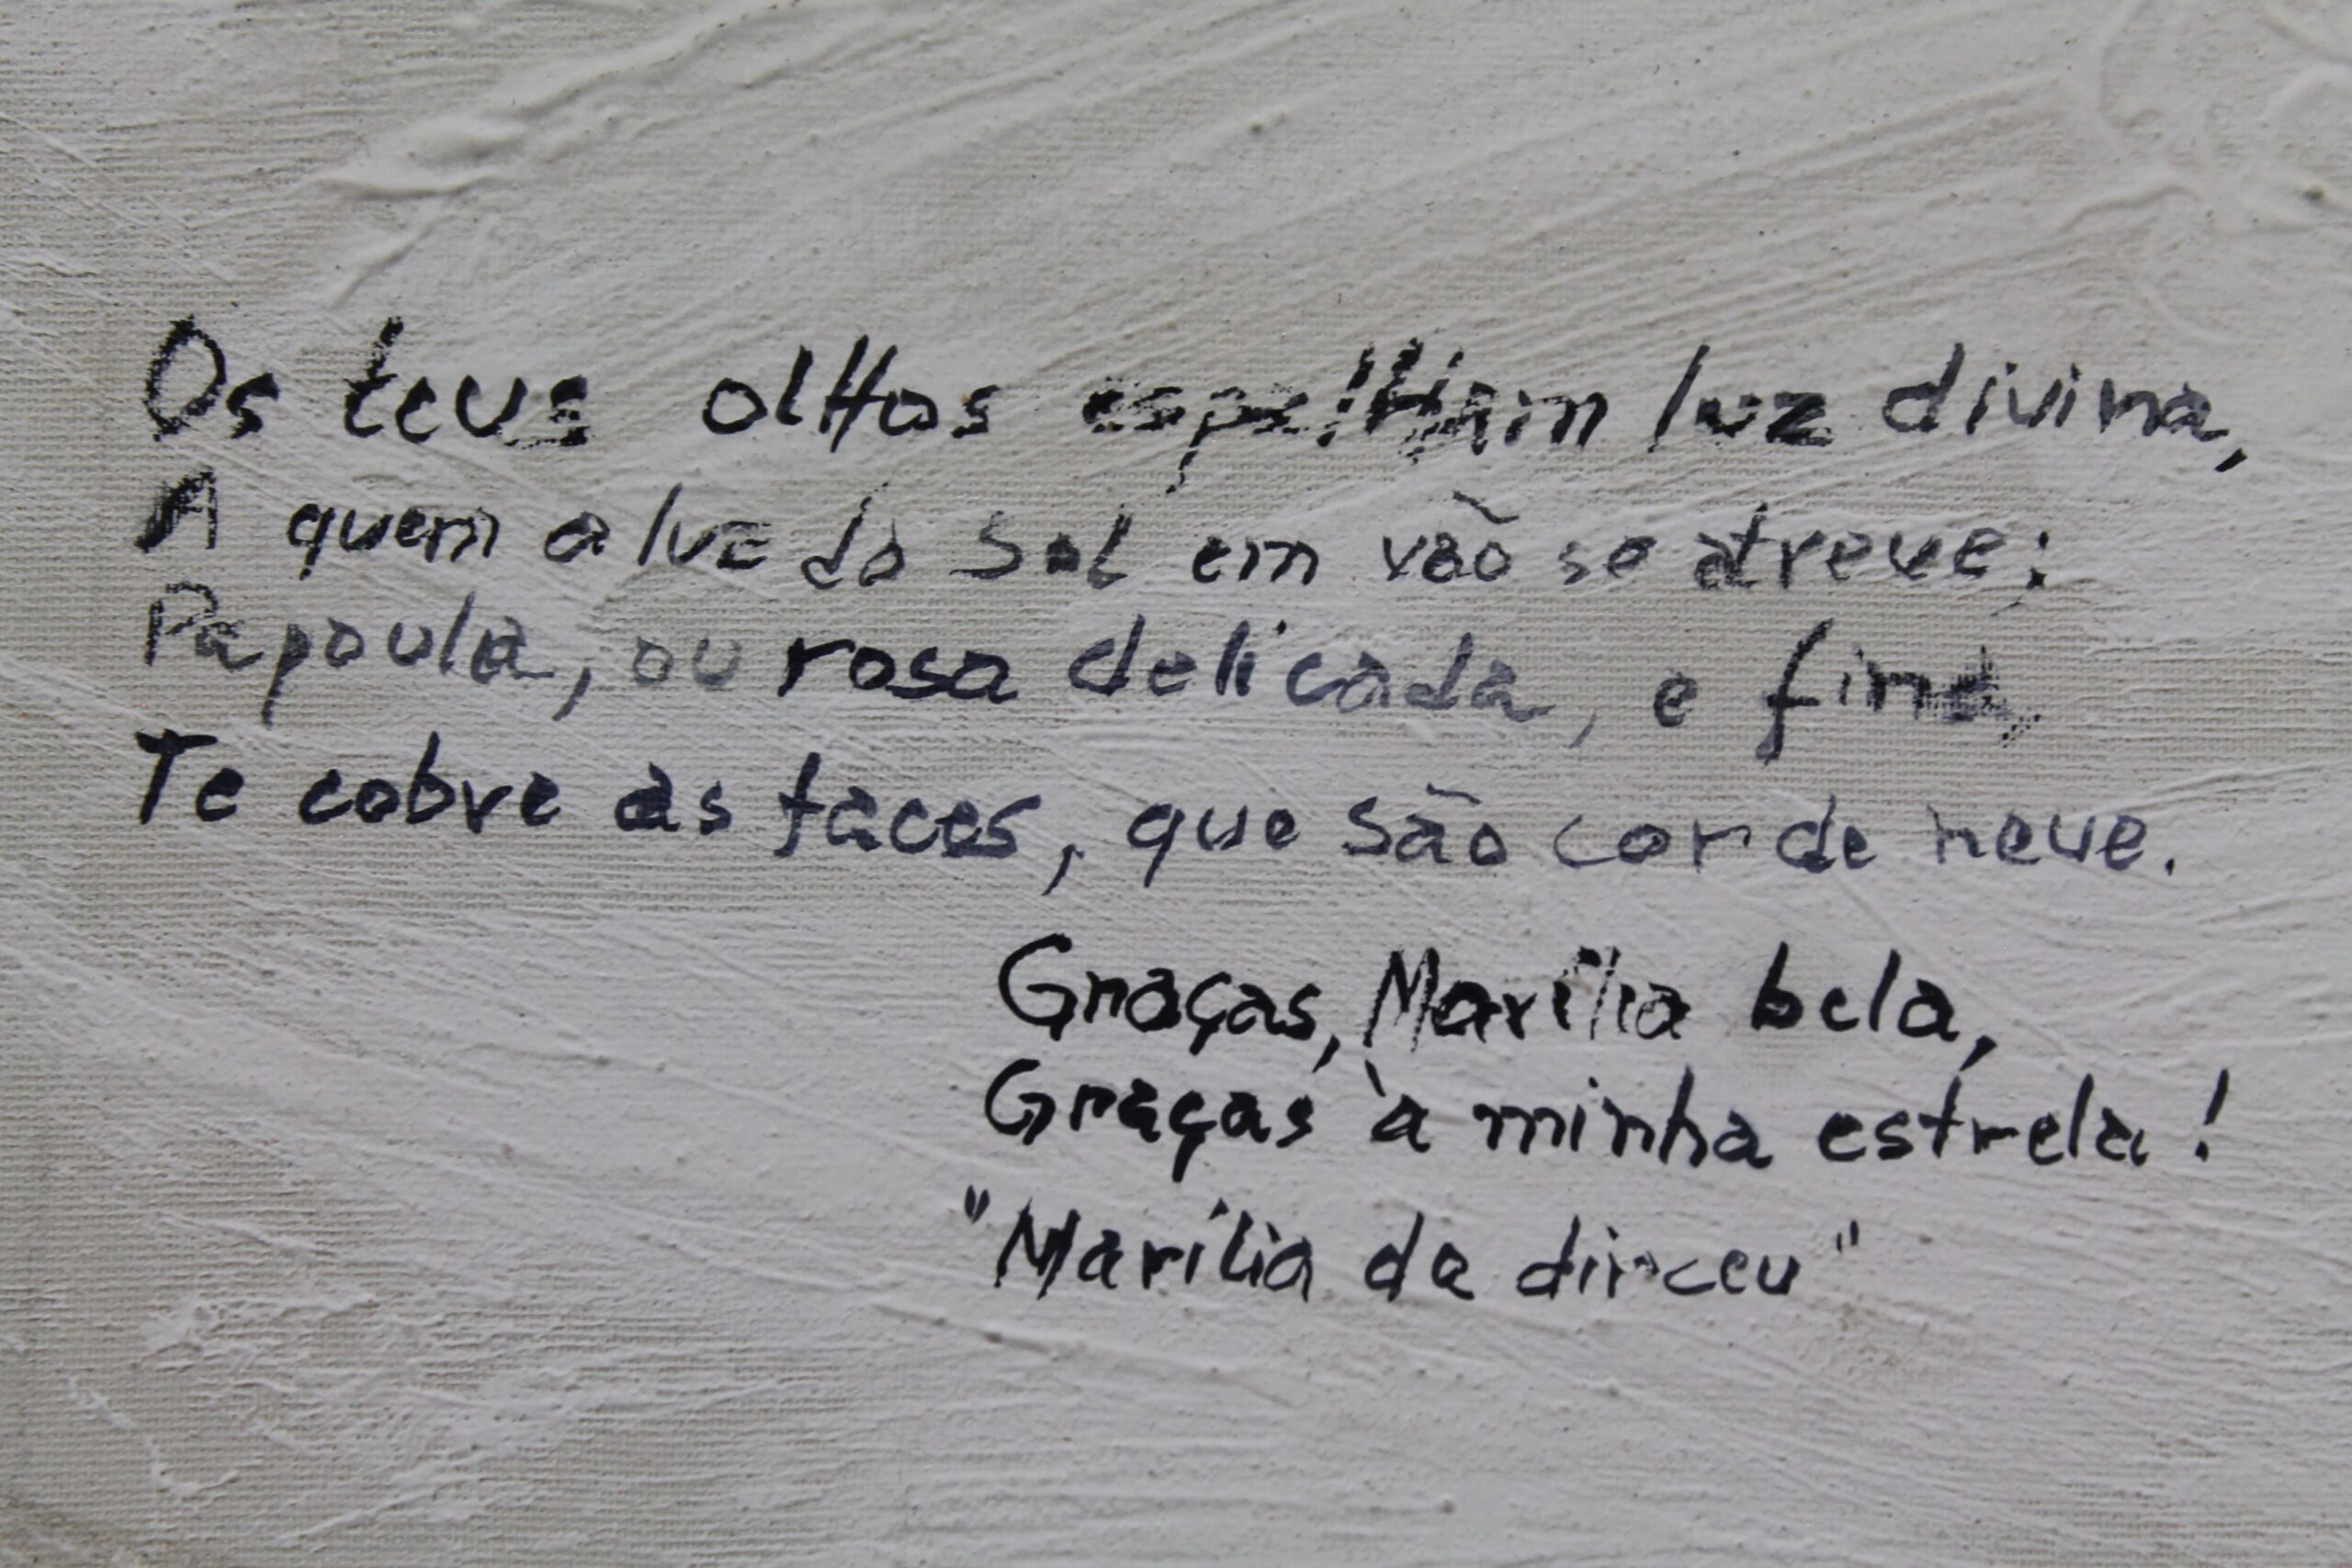 Os teus olhos espelham luz divina,
A quem a luz do Sol em vão se atreve;
Papoula, ou rosa delicada, e fina,
Te cobre as faces, que são cor de neve.
Graças, Marília bela,
Graças à minha estrela!
"Marília da dirceu"